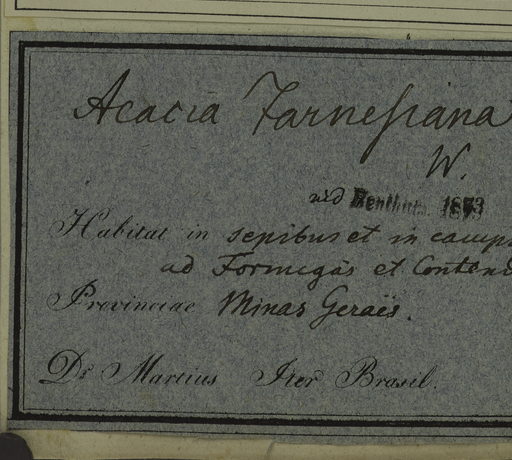 Acacia Farnesiana
W.
vid Benthm. 1873
Habitat in sepibus et in camp
ad Formigas et Conten
Provinciae Minas Geraës.
Dr Martius Iter Brasil.